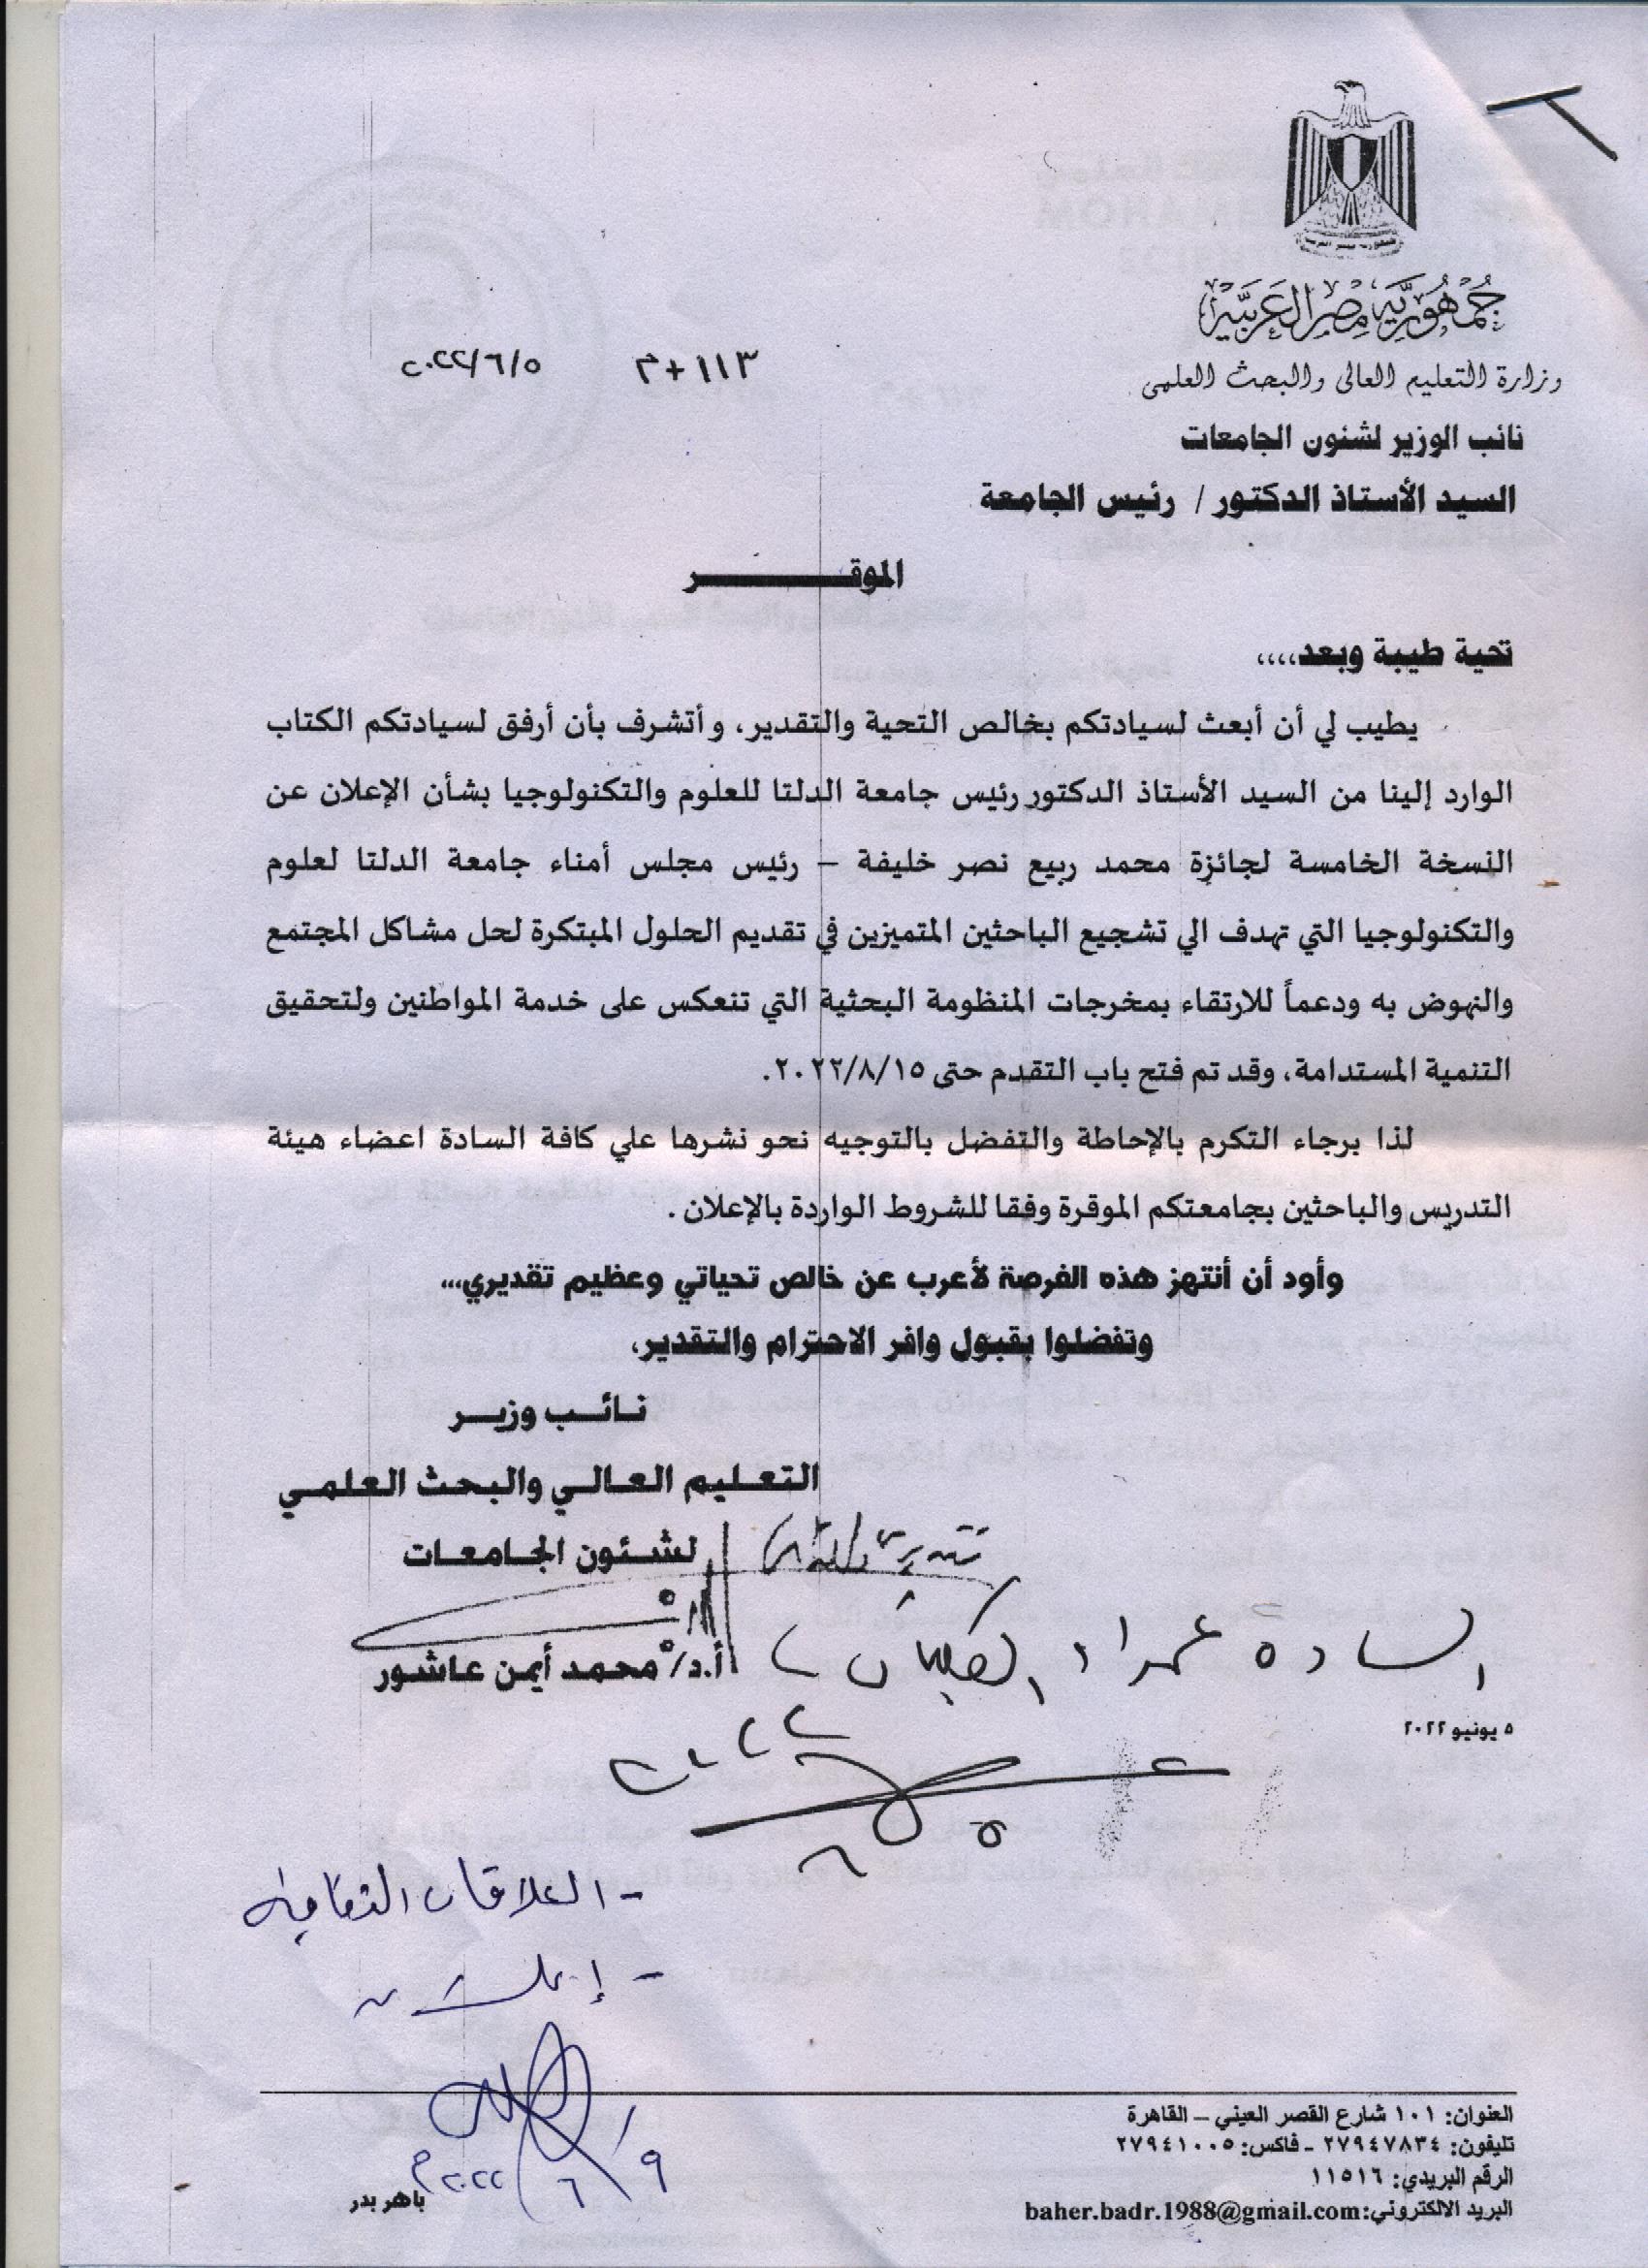 جمهورية مصر العربية
وزارة التعليم العالى والبحث العلمى
١١٣ + ٣ ٢٠٢٢/٦/٥
نائب الوزير لشئون الجامعات
السيد الأستاذ الدكتور / رئيس الجامعة
الموقــــــــر
تحية طيبة وبعد،،،،
يطيب لي أن أبعث لسيادتكم بخالص التحية والتقدير، وأتشرف بأن أرفق لسيادتكم الكتاب
الوارد إلينا من السيد الأستاذ الدكتور رئيس جامعة الدلتا للعلوم والتكنولوجيا بشأن الإعلان عن
النسخة الخامسة لجائزة محمد ربيع نصر خليفة – رئيس مجلس أمناء جامعة الدلتا لعلوم
والتكنولوجيا التي تهدف الي تشجيع الباحثين المتميزين في تقديم الحلول المبتكرة لحل مشاكل المجتمع
والنهوض به ودعماً للارتقاء بمخرجات المنظومة البحثية التي تنعكس على خدمة المواطنين ولتحقيق
التنمية المستدامة، وقد تم فتح باب التقدم حتى ٢٠٢٢/٨/١٥.
لذا برجاء التكرم بالإحاطة والتفضل بالتوجيه نحو نشرها علي كافة السادة اعضاء هيئة
التدريس والباحثين بجامعتكم الموقرة وفقا للشروط الواردة بالإعلان .
وأود أن أنتهز هذه الفرصة لأعرب عن خالص تحياتي وعظيم تقديري...
وتفضلوا بقبول وافر الاحترام والتقدير،
نائب وزير
التعليم العالي والبحث العلمي
لشئون الجامعات
أ.د/ محمد أيمن عاشور
السادة عمداء الكليات
٥ يونيو ٢٠٢٢
- العلاقات الثقافية
٢٠٢٢/٦/٩م
باهر بدر
العنوان: ١٠١ شارع القصر العيني – القاهرة
تليفون: ٢٧٩٤٧٨٣٤ - فاكس: ٢٧٩٤١٠٠٥
الرقم البريدي: ١١٥١٦
البريد الالكتروني: baher.badr.1988@gmail.com